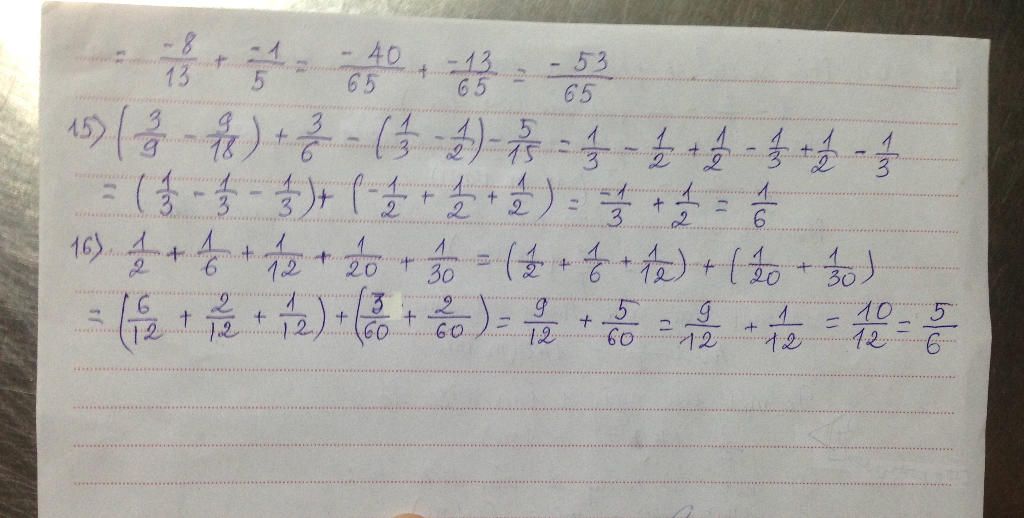 = -8/13 + -1/5 = -40/65 + -13/65 = -53/65
15) (3/9 - 9/18) + 3/6 - (1/3 - 1/2) - 5/15 = 1/3 - 1/2 + 1/2 - 1/3 + 1/2 - 1/3
= (1/3 - 1/3 - 1/3) + (-1/2 + 1/2 + 1/2) = -1/3 + 1/2 = 1/6
16) 1/2 + 1/6 + 1/12 + 1/20 + 1/30 = (1/2 + 1/6 + 1/12) + (1/20 + 1/30)
= (6/12 + 2/12 + 1/12) + (3/60 + 2/60) = 9/12 + 5/60 = 9/12 + 1/12 = 10/12 = 5/6